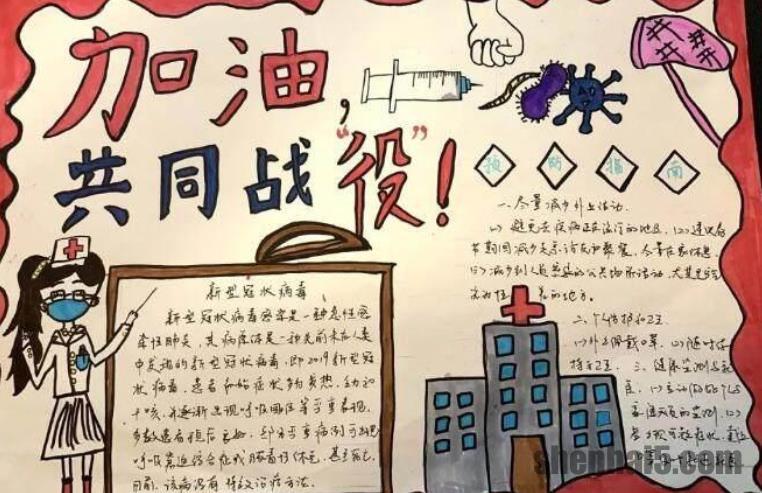 加油，
共同战“役”！
预防指南
一、尽量减少外出活动.
(1) 避免去疾病正在流行的地区. (2) 建议春
节期间减少走亲访友和聚餐，尽量在家休息.
(3) 减少到人员密集的公共场所活动，尤其是空
的地方。
二、个人防护和卫
(1) 外出佩戴口罩. (2) 随时保
持手卫 三、健康监测与就
医. (1) 主动
(2)
若出现可疑症状，
新型冠状病毒
新型冠状病毒感染是一种急性感
染性肺炎，其病原体是一种先前未在人类
中发现的新型冠状病毒，即2019新型冠
状病毒，患者初始症状多为发热、乏力和
干咳，并逐渐出现呼吸困难等严重表现.
多数患者预后良好，部分严重病例可出现
呼吸窘迫综合征或脓毒症休克，甚至死亡.
目前，该病没有特效治疗方法.
shenbai5.com